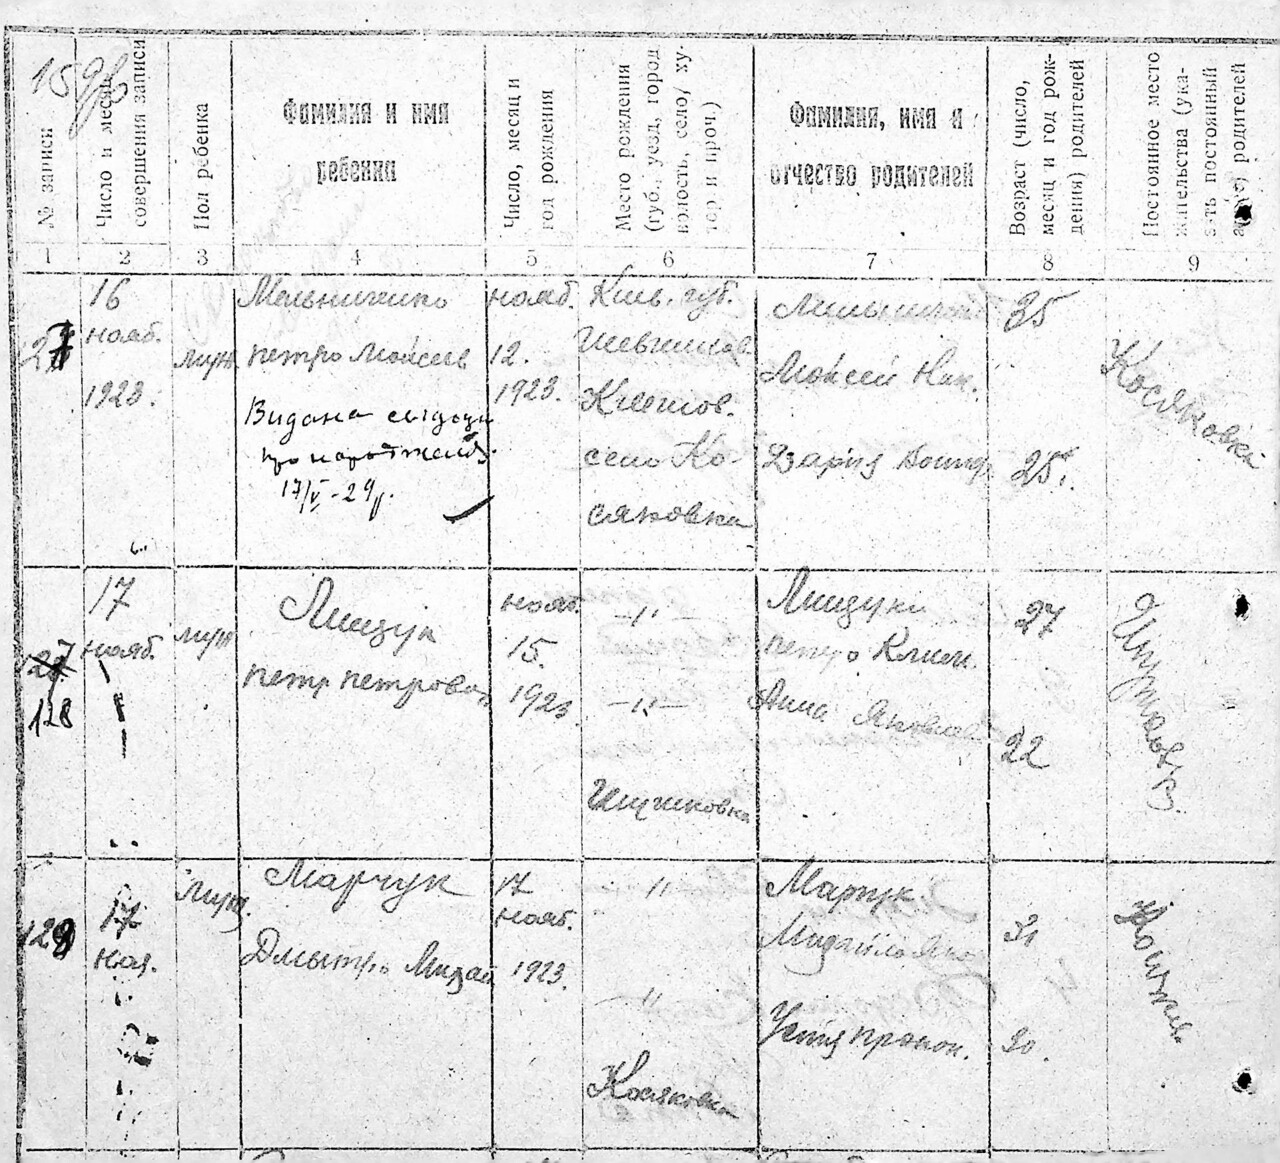 15
№ записи
Число и месяц
совершения записи
Пол ребенка
Фамилия и имя
ребенка
Число, месяц и
год рождения
Место рождения
(губ., уезд, город
волость, село/ ху-
тор и проч.)
Фамилия, имя и
отчество родителей
Возраст (число,
месяц и год рож-
дения) родителей
Постоянное место
жительства (ука-
зать постоянный
адрес) родителей
1 2 3 4 5 6 7 8 9
16
нояб.
1923.
муж
Мельниченко
петро Мойсеев
Видана
про народження
17/V-29р.
нояб.
12.
1923.
Киев. губ.
село Ко-
сяковка
Мойсей Ник.
Дария
35
25.
Косяковка
128
17
нояб.
муж
Лищук
петр петрович
нояб.
15.
1923.
—"—
—"—
петро Клим.
Анна Яковлев
27
22
129
17
ноя.
муж.
Марчук
Дмытро Михай
17
нояб.
1923.
"
"
Косяковка
Марчук
Михайло Яко
Устя прокоп.
31
30.